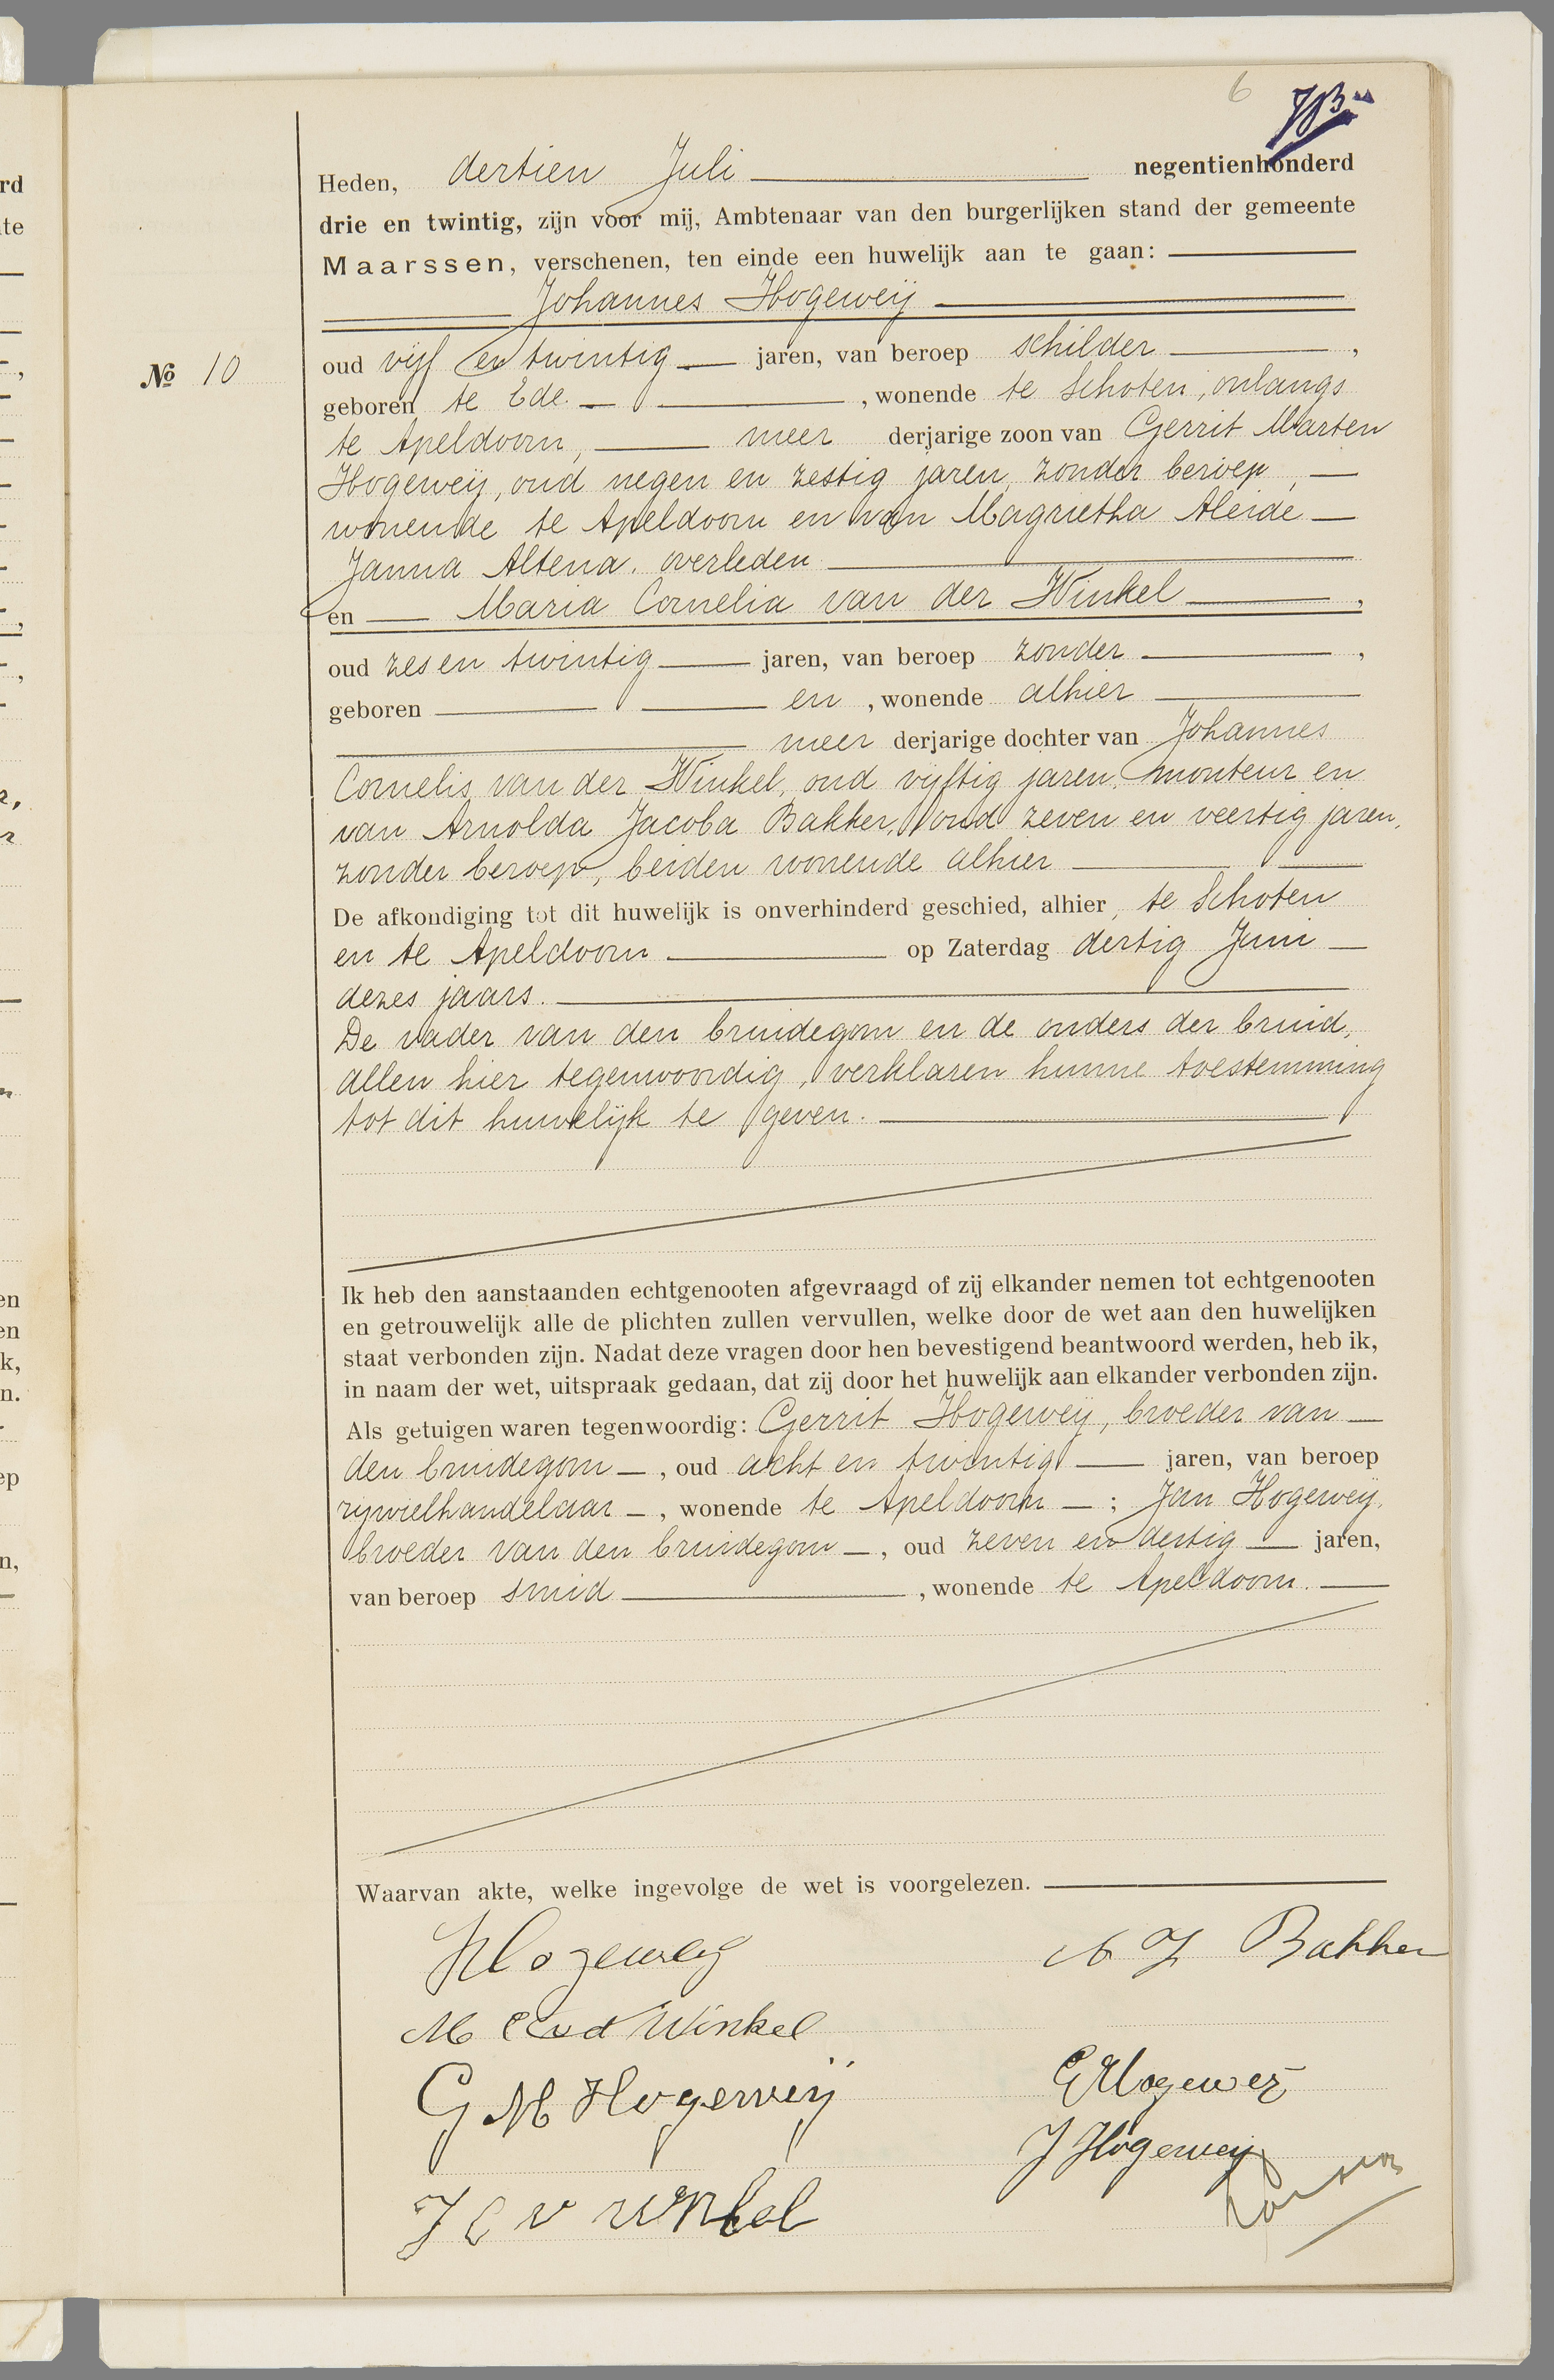 6
Heden, dertien Juli negentienhonderd
drie en twintig, zijn voor mij, Ambtenaar van den burgerlijken stand der gemeente
Maarssen, verschenen, ten einde een huwelijk aan te gaan:
Johannes Hogeweij
№ 10
oud vijf en twintig jaren, van beroep schilder,
geboren te Ede, wonende te Schoten, onlangs
te Apeldoorn, meer derjarige zoon van Gerrit Marten
Hogeweij, oud negen en zestig jaren, zonder beroep,
wonende te Apeldoorn en van Magrietha Aleide
Janna Altena, overleden
en Maria Cornelia van der Winkel,
oud zes en twintig jaren, van beroep zonder,
geboren en, wonende alhier
meer derjarige dochter van Johannes
Cornelis van der Winkel, oud vijftig jaren, monteur en
van Arnolda Jacoba Bakker, oud zeven en veertig jaren,
zonder beroep, beiden wonende alhier
De afkondiging tot dit huwelijk is onverhinderd geschied, alhier, te Schoten
en te Apeldoorn op Zaterdag dertig Juni
dezes jaars.
De vader van den bruidegom en de ouders der bruid,
allen hier tegenwoordig, verklaren hunne toestemming
tot dit huwelijk te geven.
Ik heb den aanstaanden echtgenooten afgevraagd of zij elkander nemen tot echtgenooten
en getrouwelijk alle de plichten zullen vervullen, welke door de wet aan den huwelijken
staat verbonden zijn. Nadat deze vragen door hen bevestigend beantwoord werden, heb ik,
in naam der wet, uitspraak gedaan, dat zij door het huwelijk aan elkander verbonden zijn.
Als getuigen waren tegenwoordig: Gerrit Hogeweij, broeder van
den bruidegom, oud acht en twintig jaren, van beroep
rijwielhandelaar, wonende te Apeldoorn; Jan Hogeweij,
broeder van den bruidegom, oud zeven en dertig jaren,
van beroep smid, wonende te Apeldoorn.
Waarvan akte, welke ingevolge de wet is voorgelezen.
J Hogeweij
A J Bakker
M C v d Winkel
G M Hogerweij
G Hogeweij
J Hogeweij
J C v Winkel